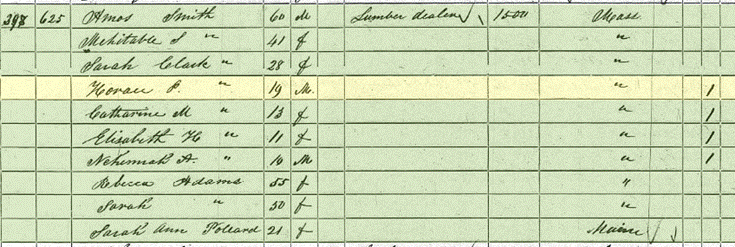 398 625 Amos Smith 60 M Lumber dealer 1500 Mass
Mehitable S " 41 f "
Sarah Clark " 28 f "
Horace P. " 19 M. " 1
Catharine M " 13 f " 1
Elisabeth H " 11 f " 1
Nehemiah A. " 10 M " 1
Rebecca Adams 55 f "
Sarah " 50 f "
Sarah Ann 21 f Maine